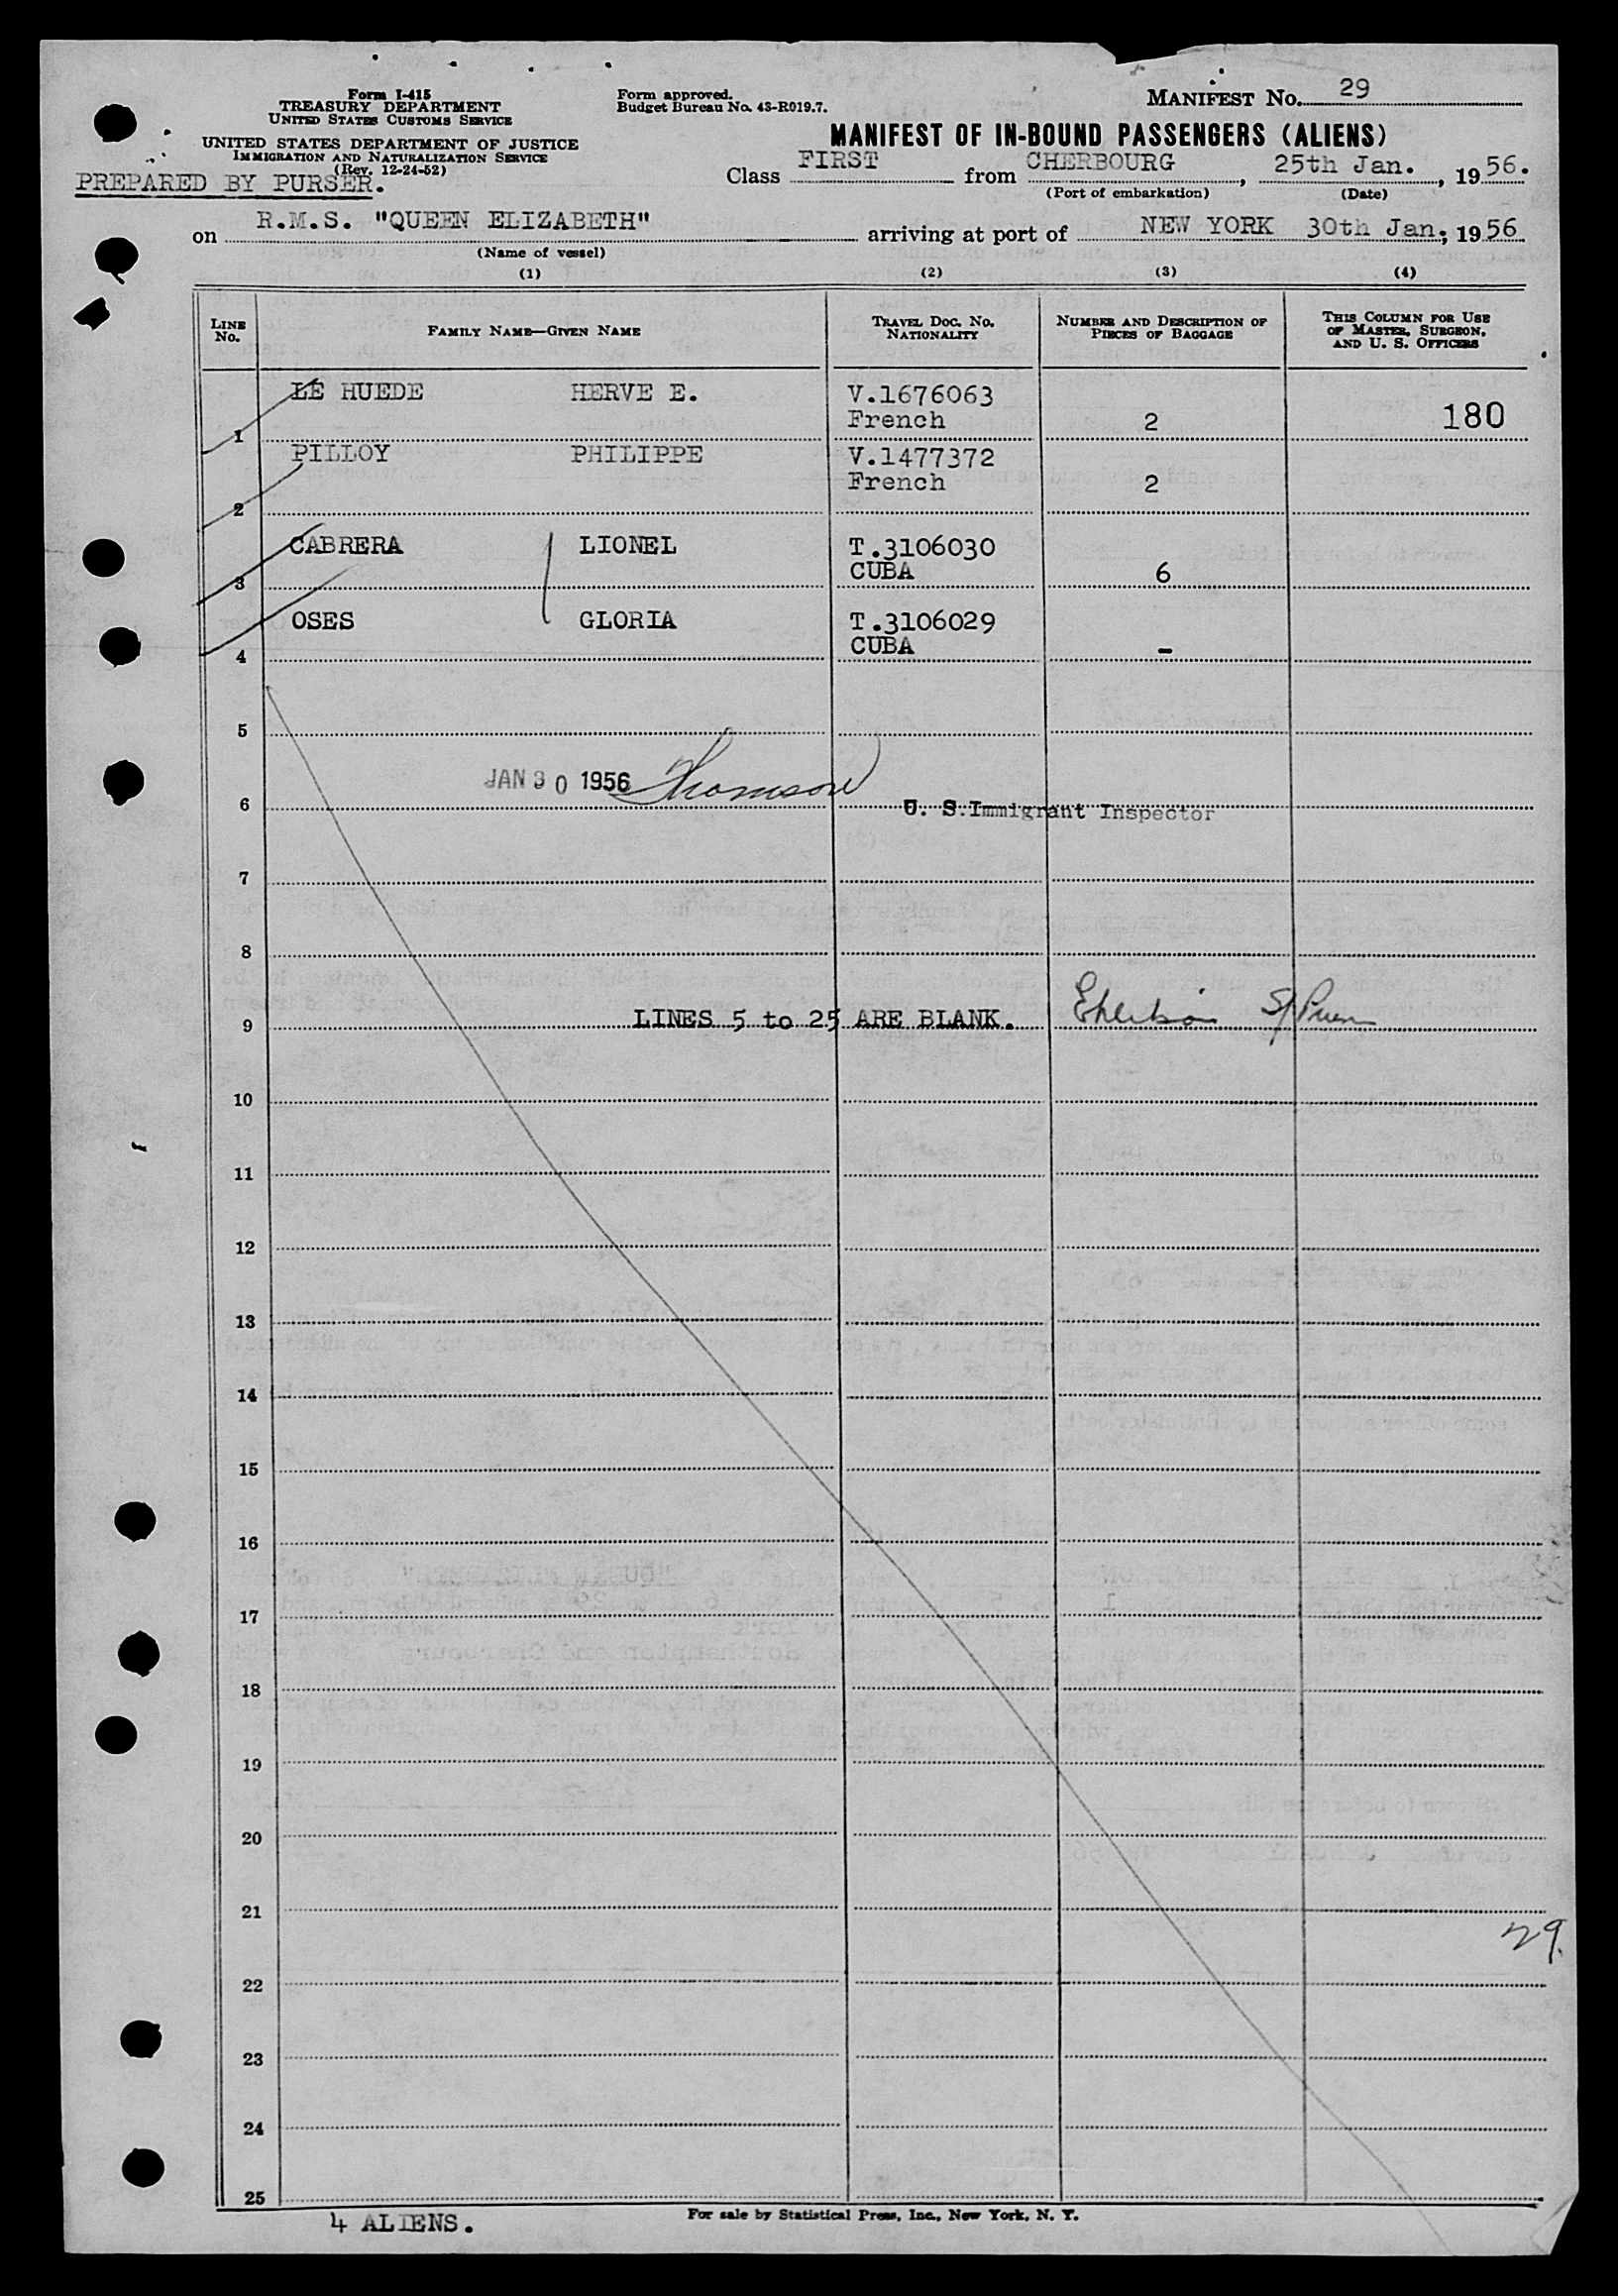 Form I-415
TREASURY DEPARTMENT
UNITED STATES CUSTOMS SERVICE
UNITED STATES DEPARTMENT OF JUSTICE
IMMIGRATION AND NATURALIZATION SERVICE
(Rev. 12-24-52)
PREPARED BY PURSER.
Form approved.
Budget Bureau No. 43-R019.7.
MANIFEST NO. 29
MANIFEST OF IN-BOUND PASSENGERS (ALIENS)
Class FIRST from CHERBOURG, 25th Jan., 1956.
(Port of embarkation) (Date)
on R.M.S. "QUEEN ELIZABETH" arriving at port of NEW YORK 30th Jan, 1956
(Name of vessel)
(1) (2) (3) (4)
LINE NO. FAMILY NAME—GIVEN NAME TRAVEL DOC. NO. NATIONALITY NUMBER AND DESCRIPTION OF PIECES OF BAGGAGE THIS COLUMN FOR USE OF MASTER, SURGEON, AND U. S. OFFICERS
LE HUEDE HERVE E. V.1676063
1 French 2 180
PILLOY PHILIPPE V.1477372
French 2
2
CABRERA LIONEL T.3106030
3 CUBA 6
OSES GLORIA T.3106029
4 CUBA -
5
JAN 30 1956 Thomson
6 U. S. Immigrant Inspector
7
8
9 LINES 5 to 25 ARE BLANK.
10
11
12
13
14
15
16
17
18
19
20
21
29.
22
23
24
25
4 ALIENS.
For sale by Statistical Press, Inc., New York, N. Y.